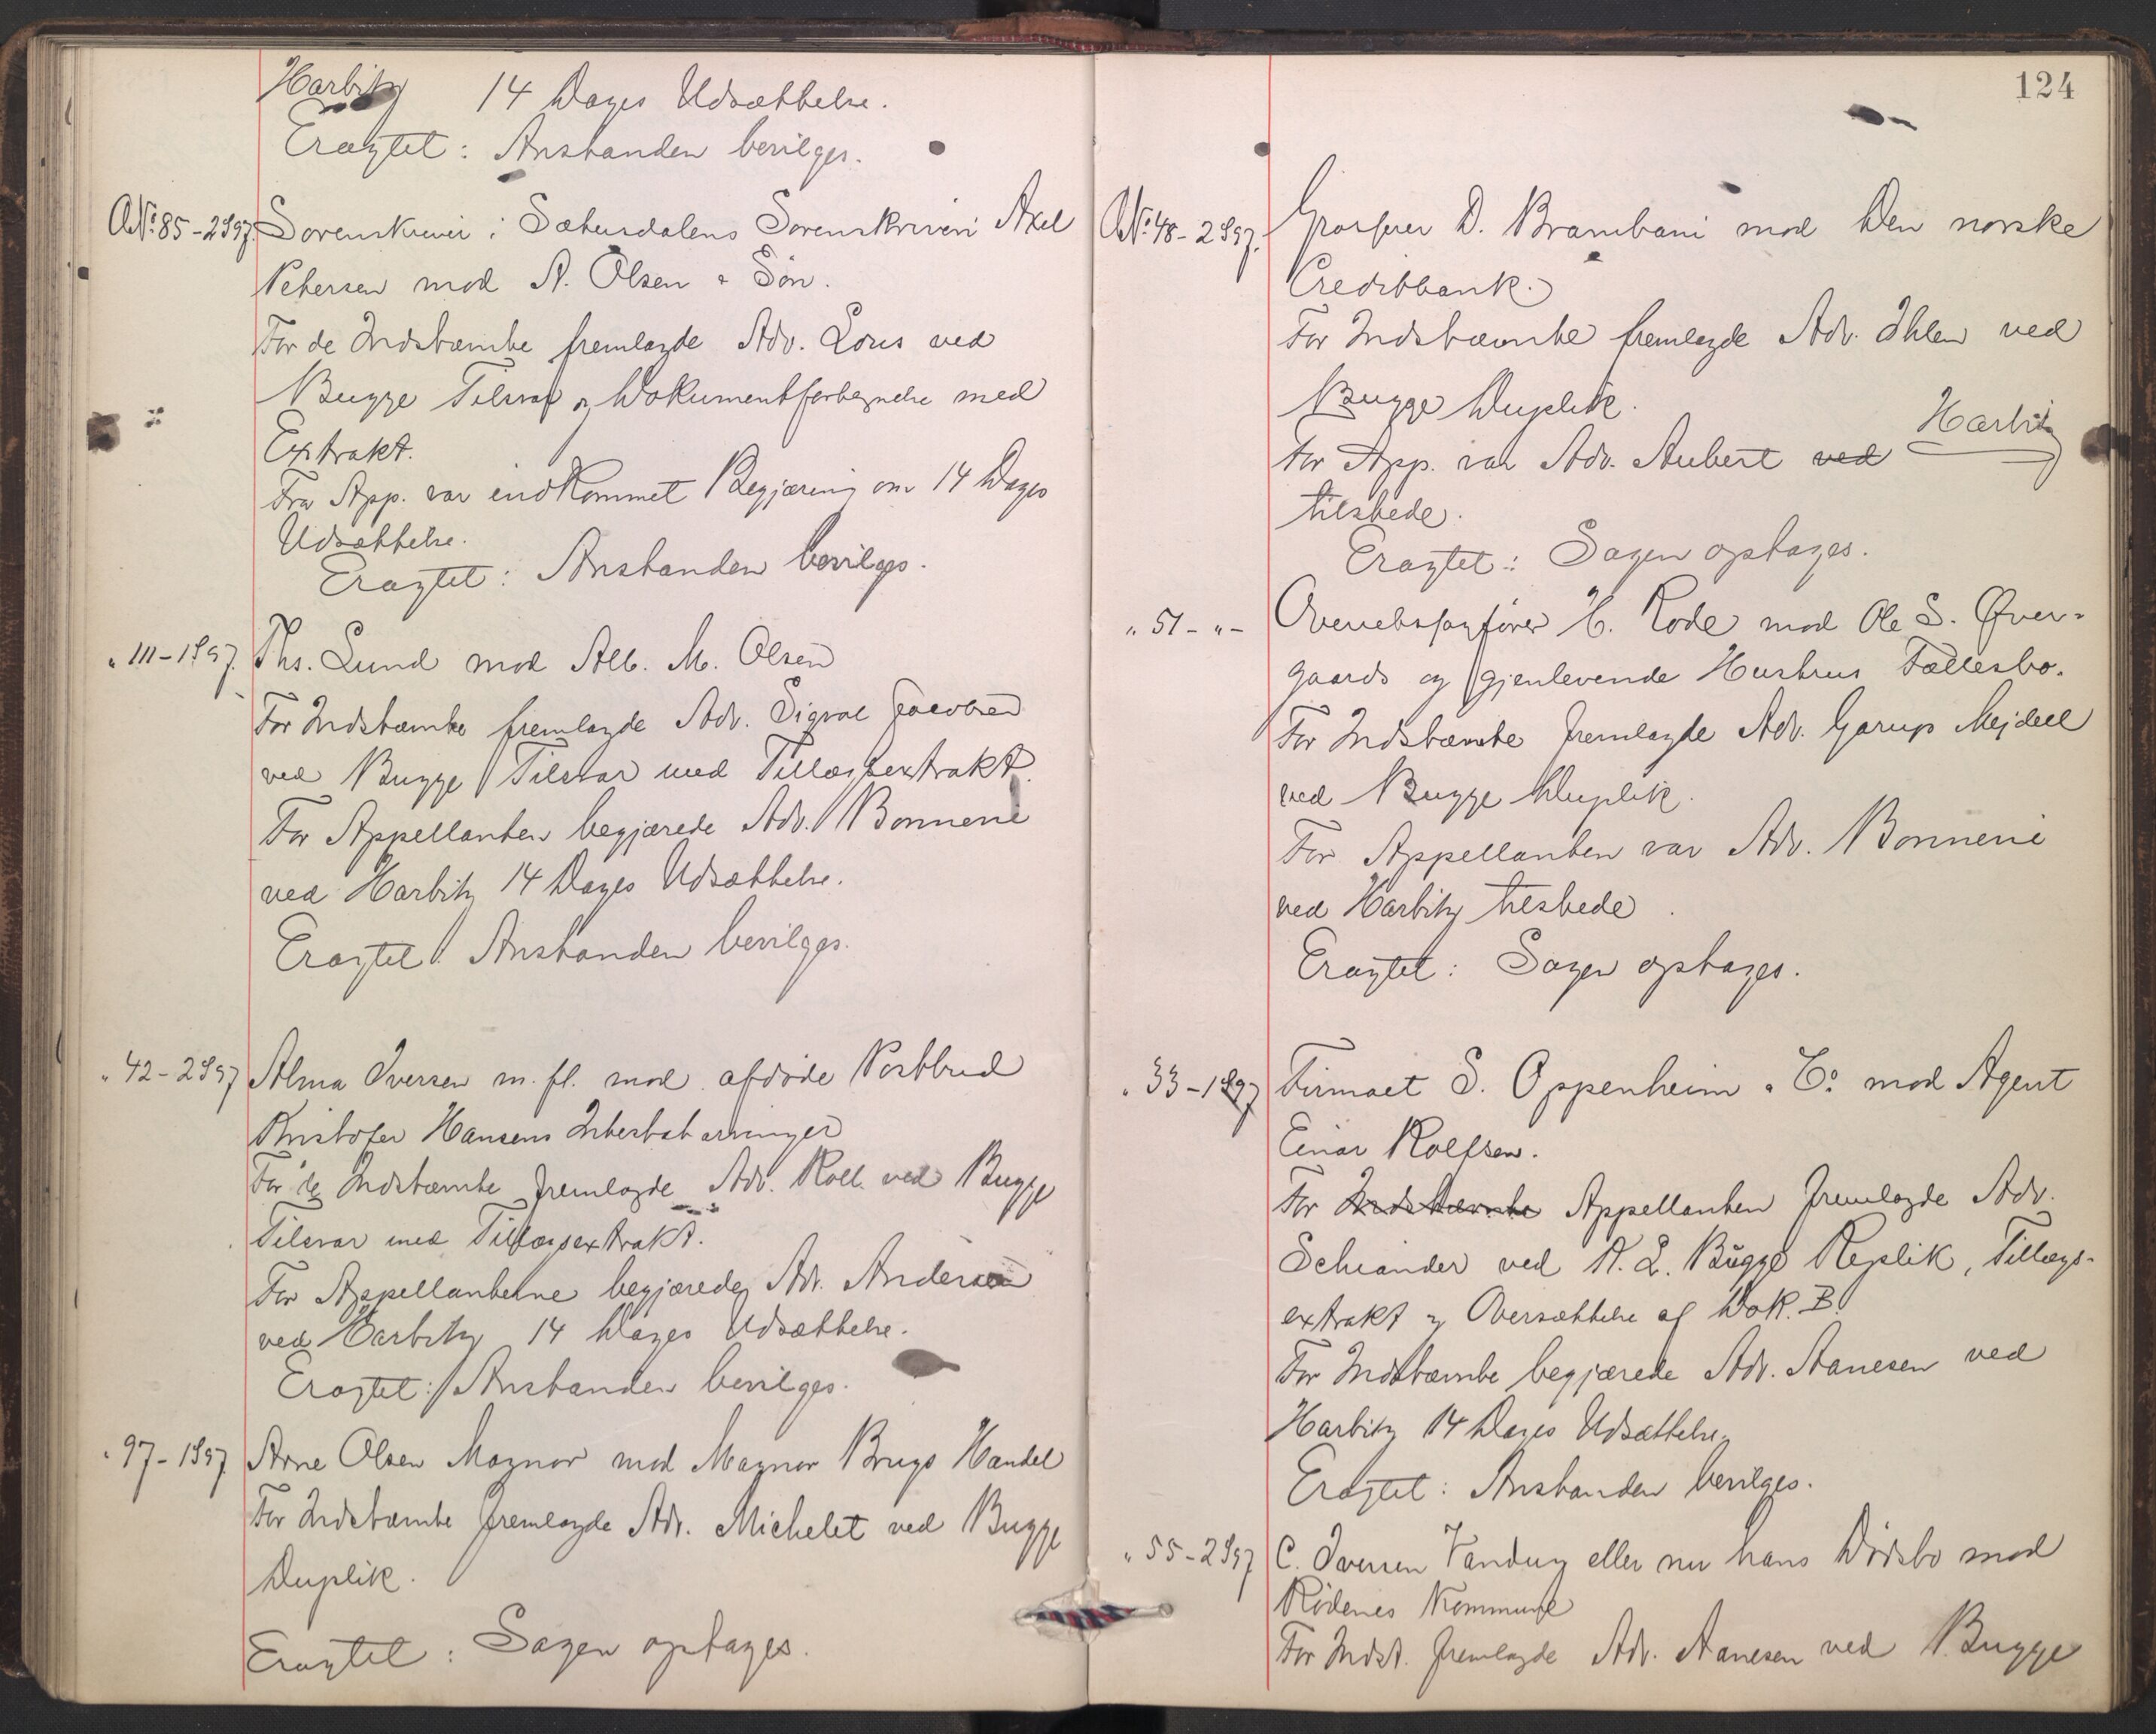 Harbitz 14 Dages Udsættelse.
Eragtet: Anstanden bevilges.
A.N: 85-2 S97. Sorenskriver i Sætersdalens Sorenskriveri Axel
Petersen mod A. Olsen & Søn.
For de Indstævnte fremlagde Adv. Lous ved
Bugge Tilsvar og Dokumentfortegnelse med
Extrakt.
Fra App. var indkommet Begjæring om 14 Dages
Udsættelse.
Eragtet: Anstanden bevilges.
" 111-1 S97. Ths. Lund mod Alb. M. Olsen
For Indstævnte fremlagde Adv. Sigval Jacobsen
ved Bugge Tilsvar med Tillægsextrakt.
For Appellanten begjærede Adv. Bonnevie
ved Harbitz 14 Dages Udsættelse.
Eragtet: Anstanden bevilges.
" 42-2 S97 Alma Iversen m. fl. mod afdøde Postbud
Kristofer Hansens Intestatarvinger
For de Indstævnte fremlagde Adv. Roll ved Bugge
Tilsvar med Tillægsextrakt.
For Appellanterne begjærede Adv. Andersen
ved Harbitz 14 Dages Udsættelse.
Eragtet: Anstanden bevilges.
" 97-1 S97. Arne Olsen Magnor mod Magnor Brugs Handel
For Indstævnte fremlagde Adv. Michelet ved Bugge
Duplik.
Eragtet: Sagen optages.
124
A.N: 48-2 S97. Grosserer D. Brambani mod Den norske
Creditbank.
For Indstævnte fremlagde Adv. Ihlen ved
Bugge Duplik.
For App. var Adv. Aubert ved Harbitz
tilstede.
Eragtet: Sagen optages.
" 51-"- Overretssagfører H. Rode mod Ole S. Øver-
gaards og gjenlevende Hustrus Fællesbo.
For Indstævnte fremlagde Adv. Garup Mejdell
ved Bugge Duplik.
For Appellanten var Adv. Bonnevie
ved Harbitz tilstede.
Eragtet: Sagen optages.
" 33-1 S97 Firmaet S. Oppenheim & Co mod Agent
Einar Rolfsen.
For Indstævnte Appellanten fremlagde Adv.
Schiander ved A. L. Bugge Replik, Tillægs-
extrakt og Oversættelse af Dok. B.
For Indstævnte begjærede Adv. Aanesen ved
Harbitz 14 Dages Udsættelse.
Eragtet: Anstanden bevilges.
" 55-2 S97 C. Iversen Vandug eller nu hans Dødsbo mod
Rødenes Kommune
For Indst. fremlagde Adv. Aanesen ved Bugge